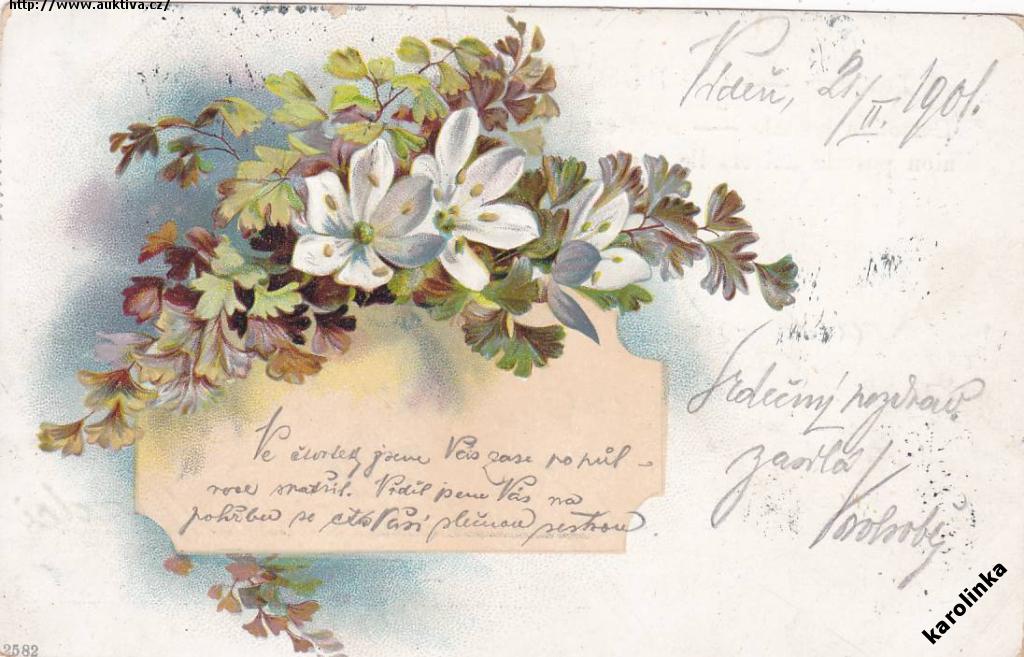 http://www.auktiva.cz/
Vídeň, 21/II. 1901.
Srdečný pozdrav
zasílá
Ve čtvrtek jsem Vás zase po půl-
roce spatřil. Viděl jsem Vás na
pohřbu se ctě Vaší slečnou sestrou
2582
karolinka